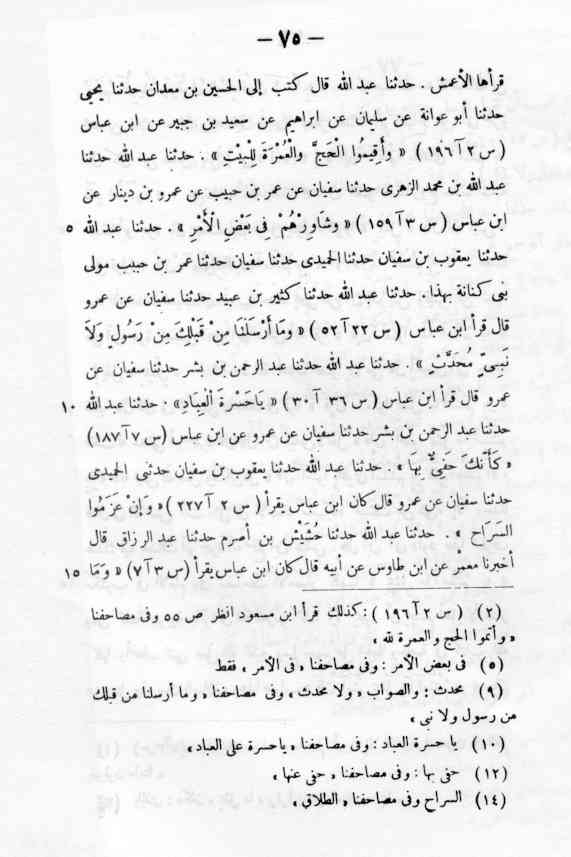 — ٧٥ —
قرأها الأعمش . حدثنا عبد الله قال كتب إلى الحسين بن معدان حدثنا يحيى
حدثنا أبو عوانة عن سليمان عن ابراهيم عن سعيد بن جبير عن ابن عباس
( س ٢ آ ١٩٦ ) « وَأَقِيمُوا الْحَجَّ وَالْعُمْرَةَ لِلْبَيْتِ » . حدثنا عبد الله حدثنا
عبد الله بن محمد الزهرى حدثنا سفيان عن عمر بن حبيب عن عمرو بن دينار عن
ابن عباس ( س ٣ آ ١٥٩ ) « وَشَاوِرْهُمْ فِى بَعْضِ الْأَمْرِ » . حدثنا عبد الله ٥
حدثنا يعقوب بن سفيان حدثنا الحميدى حدثنا سفيان حدثنا عمر بن حبيب مولى
بنى كنانة بهذا . حدثنا عبد الله حدثنا كثير بن عبيد حدثنا سفيان عن عمرو
قال قرأ ابن عباس ( س ٢٢ آ ٥٢ ) « وَمَا أَرْسَلْنَا مِنْ قَبْلِكَ مِنْ رَسُولٍ وَلَا
نَبِىٍّ مُحَدَّثٍ » . حدثنا عبد الله حدثنا عبد الرحمن بن بشر حدثنا سفيان عن
عمرو قال قرأ ابن عباس ( س ٣٦ آ ٣٠ ) « يَاحَسْرَةَ الْعِبَادِ » . حدثنا عبد الله ١٠
حدثنا عبد الرحمن بن بشر حدثنا سفيان عن عمرو عن ابن عباس (س ٧ آ ١٨٧)
« كَأَنَّكَ حَفِىٌّ بِهَا » . حدثنا عبد الله حدثنا يعقوب بن سفيان حدثنى الحميدى
حدثنا سفيان عن عمرو قال كان ابن عباس يقرأ ( س ٢ آ ٢٢٧ ) « وَإِنْ عَزَمُوا
السَرَاحَ » . حدثنا عبد الله حدثنا حُشَيْش بن أصرم حدثنا عبد الرزاق قال
أخبرنا معمر عن ابن طاوس عن أبيه قال كان ابن عباس يقرأ (س ٣ آ ٧) « وَمَا ١٥
(٢) ( س ٢ آ ١٩٦ ) : كذلك قرأ ابن مسعود انظر ص ٥٥ وفى مصاحفنا
« وأتموا الحج والعمرة لله »
(٥) فى بعض الأمر : وفى مصاحفنا « فى الأمر » فقط
(٩) محدث : والصواب « ولا محدث » وفى مصاحفنا « وما أرسلنا من قبلك
من رسول ولا نبى »
(١٠) يا حسرة العباد : وفى مصاحفنا « ياحسرة على العباد »
(١٢) حفى بها : وفى مصاحفنا « حفى عنها »
(١٤) السراح وفى مصاحفنا « الطلاق »